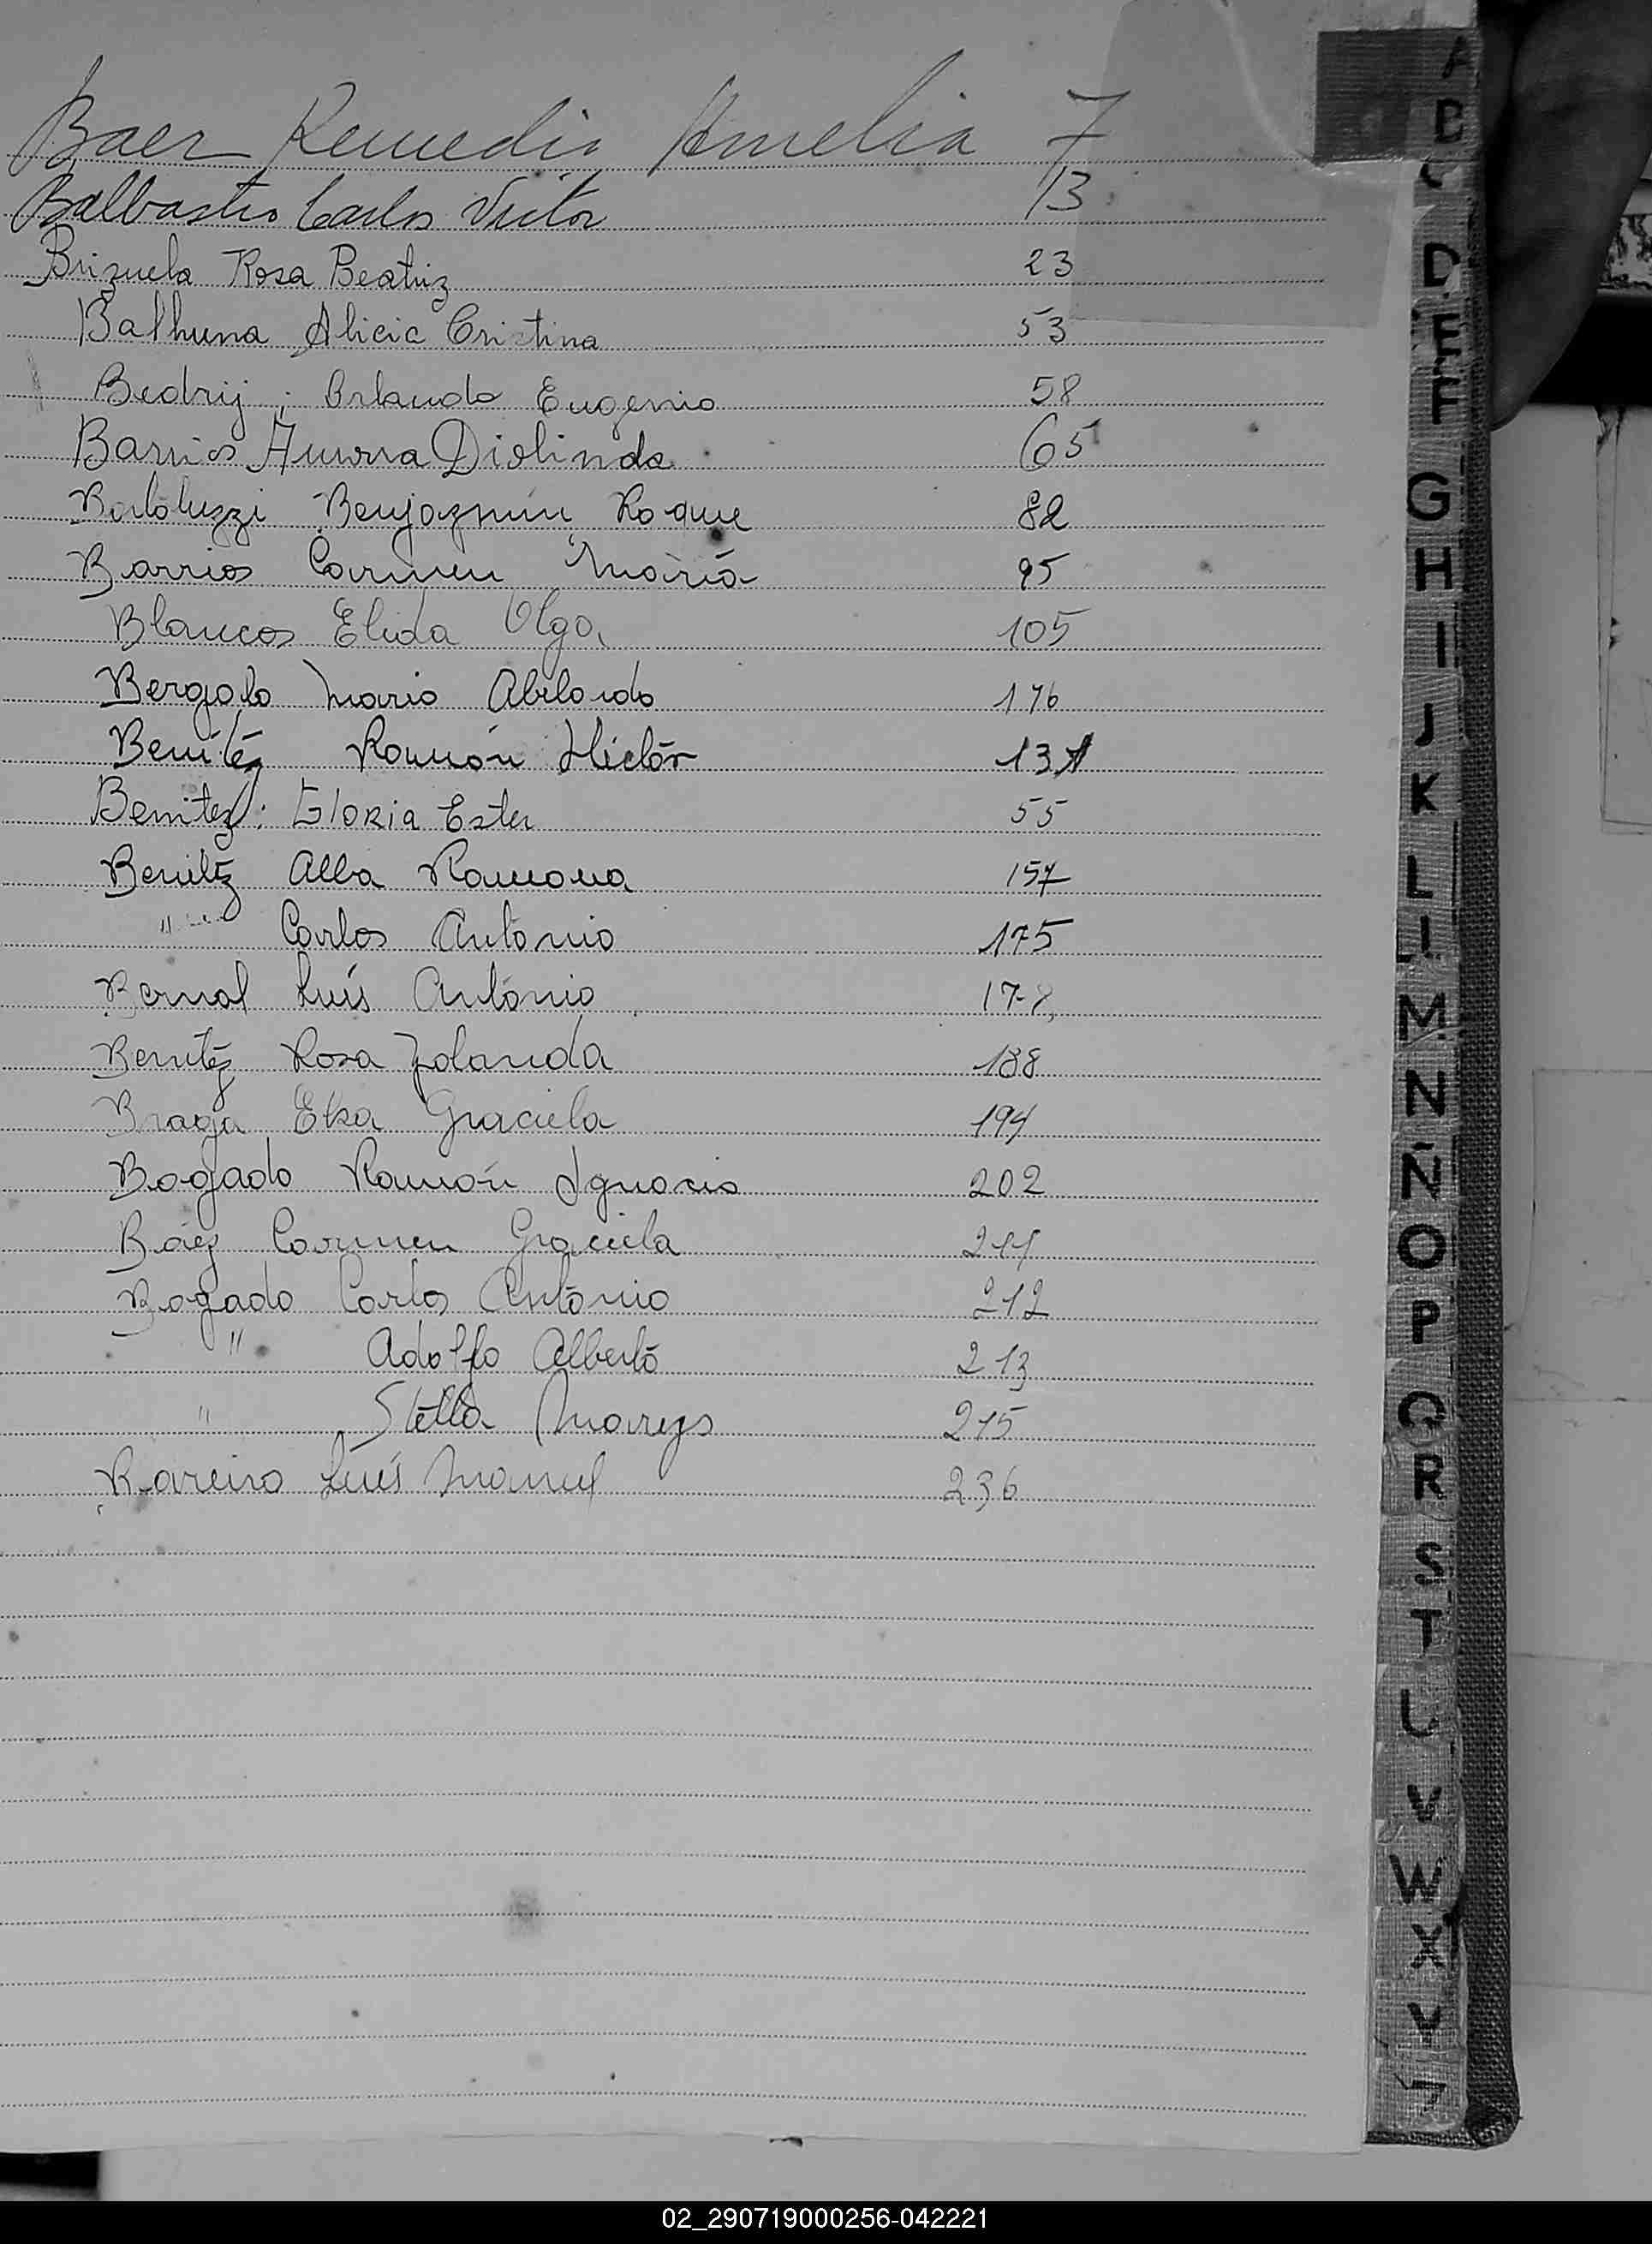 Baer Remedio Amelia 7
Balbastro Carlos Victor 13
Brizuela Rosa Beatriz 23
Balhuna Alicia Cristina 53
Bedrij : Orlando Eugenio 58
Barrios Aurora Diolinda 65
Bortoluzzi Benjazmín Roque 82
Barrios Carmen María 95
Blancos Elida Olga 105
Bergalo Mario Abelardo 176
Benítez Ramón Héctor 131
Benitez : Gloria Ester 55
Benítez Alba Ramona 157
" Carlos Antonio 175
Bernal Luís Antonio 178
Benítez Rosa Yolanda 188
Braga Elsa Graciela 194
Bogado Ramón Ignacio 202
Báez Carmen Graciela 211
Bogado Carlos Antonio 212
" Adolfo Alberto 213
" Stella Mareys 215
Bareiro Luís Manuel 236
A
B
C
D
E
F
G
H
I
J
K
L
M
N
Ñ
O
P
Q
R
S
T
U
V
W
X
Y
Z
02_290719000256-042221